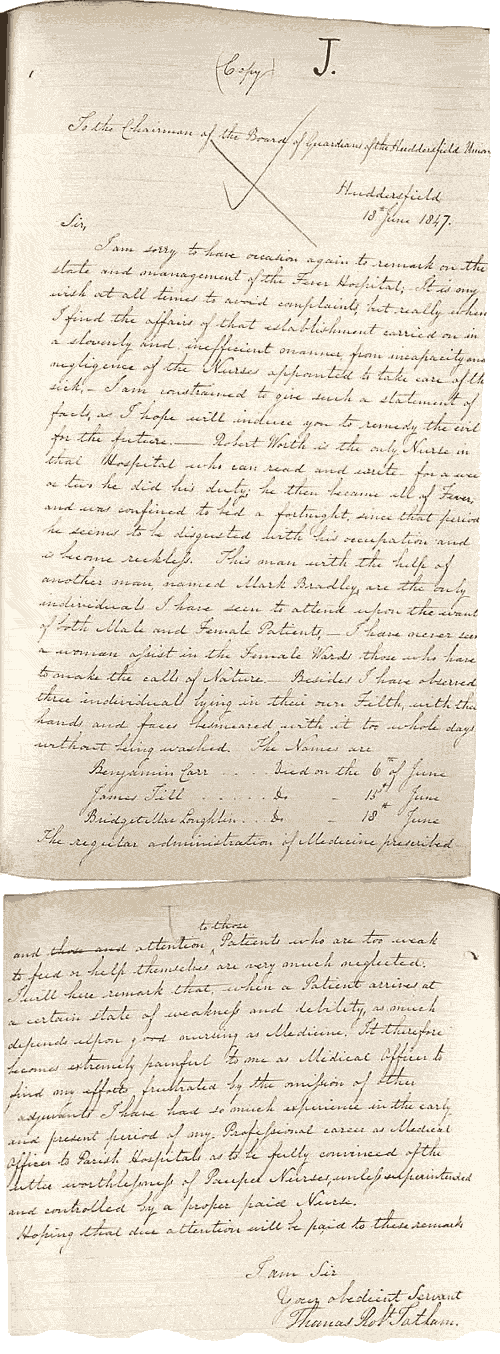 (Copy) J.
To the Chairman of the Board of Guardians of the Huddersfield Union
Huddersfield
18th June 1847.
Sir,
I am sorry to have occasion again to remark on the
state and management of the Fever Hospital; It is my
wish at all times to avoid complaints, but really when
I find the affairs of that establishment carried on in
a slovenly and inefficient manner, from incapacity and
negligence of the Nurses appointed to take care of the
sick,– I am constrained to give such a statement of
facts, as I hope will induce you to remedy the evil
for the future.— Robert Worth is the only Nurse in
that Hospital who can read and write – for a wee
or two he did his duty; he then became ill of Fever,
and was confined to bed a fortnight, since that period
he seems to be disgusted with his occupation and
is become reckless. This man with the help of
another man, named Mark Bradley, are the only
individuals I have seen to attend upon the want
of both Male and Female Patients,– I have never see
a woman assist in the Female Wards those who have
to make the calls of Nature.– Besides I have observed
three individuals lying in their own Filth, with thei
hands and faces besmeared with it two whole days
without being washed. The Names are
Benjamin Carr . . . . Died on the 6th of June
James Till . . . . . . Do – 15th June
Bridget Mac Loughlin . . Do – 18th June
The regular administration of Medicine prescribed
and those and attention to those Patients who are too weak
to feed or help themselves are very much neglected.
I will here remark that, when a Patient arrives at
a certain state of weakness and debility, as much
depends upon good nursing as Medicine. It therefore
becomes extremely painful to me as Medical Officer to
find my efforts frustrated by the omission of other
adjuvants. I have had so much experience in the early
and present period of my Professional career as Medical
Officer to Parish Hospitals as to be fully convinced of the
utter worthlessness of Pauper Nurses, unless superintended
and controlled by a proper paid Nurse.
Hoping that due attention will be paid to these remarks
I am Sir
Your obedient Servant
Thomas Robt Tatham.